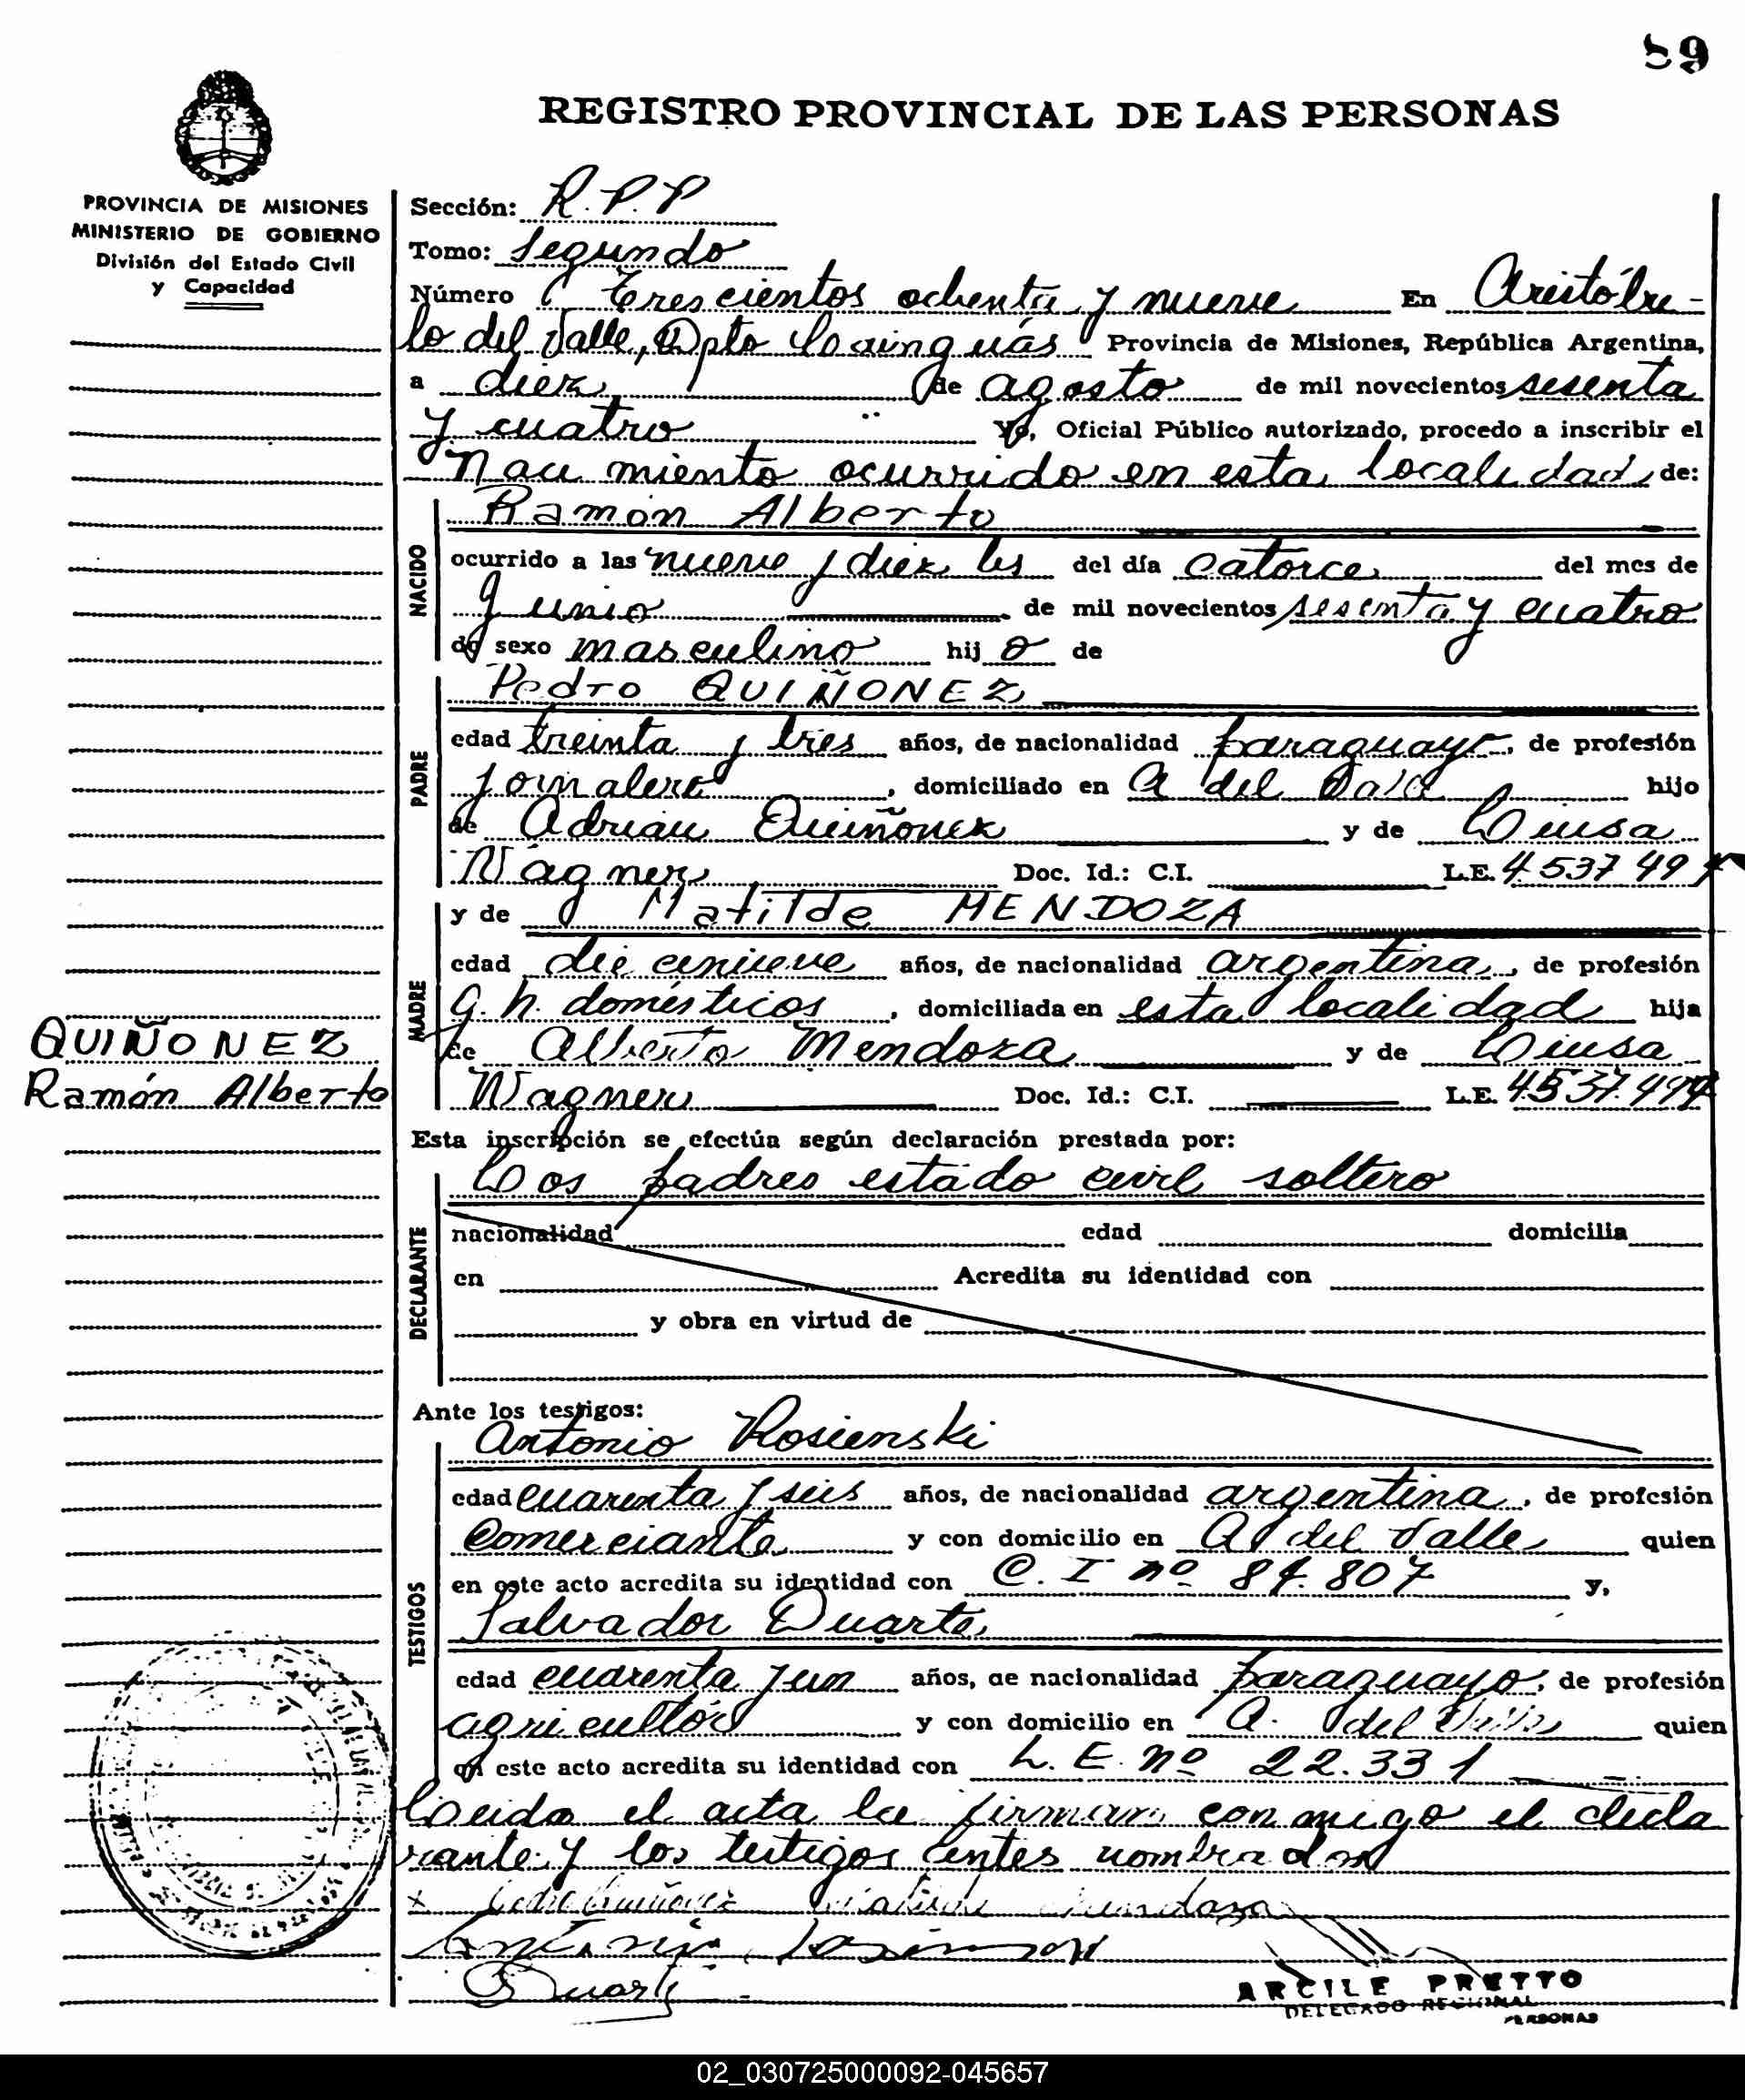 89
REGISTRO PROVINCIAL DE LAS PERSONAS
PROVINCIA DE MISIONES
MINISTERIO DE GOBIERNO
División del Estado Civil
y Capacidad
Sección: R.P.P
Tomo: Segundo
Número Trescientos ochenta y nueve En Aristóbu-
lo del Valle, Dpto Cainguás Provincia de Misiones, República Argentina,
a diez de agosto de mil novecientos sesenta
y cuatro Yo, Oficial Público autorizado, procedo a inscribir el
Naci miento ocurrido en esta localidad de:
NACIDO
Ramón Alberto
ocurrido a las nueve y diez hs del día catorce del mes de
Junio de mil novecientos sesenta y cuatro
de sexo masculino hij o de
PADRE
Pedro QUIÑONEZ
edad treinta y tres años, de nacionalidad paraguayo, de profesión
jornalero, domiciliado en A del Valle hijo
de Adrian Quiñonez y de Luisa
Wagner Doc. Id.: C.I. L.E. 4 537 49
MADRE
y de Matilde MENDOZA
edad diecinueve años, de nacionalidad argentina, de profesión
q. h. domésticos, domiciliada en esta localidad hija
de Alberto Mendoza y de Luisa
Wagner Doc. Id.: C.I. L.E. 4.537.494
QUIÑONEZ
Ramón Alberto
Esta inscripción se efectúa según declaración prestada por:
DECLARANTE
Los padres estado civil soltero
nacionalidad edad domicilia
en Acredita su identidad con
y obra en virtud de
Ante los testigos:
TESTIGOS
Antonio Kosienski
edad cuarenta y seis años, de nacionalidad argentina, de profesión
Comerciante y con domicilio en A del Valle quien
en este acto acredita su identidad con C. I nº 84.807 y,
Salvador Duarte
edad cuarenta y un años, de nacionalidad paraguayo, de profesión
agricultór y con domicilio en A. del Valle quien
en este acto acredita su identidad con L. E. nº 22.331
Leida el acta la firman conmigo el decla
rante y los testigos antes nombrados
Pedro Quiñonez Matilde Mendoza
Duarte
ARCILE PRETTO
DELEGADO REGIONAL
PERSONAS
02_030725000092-045657